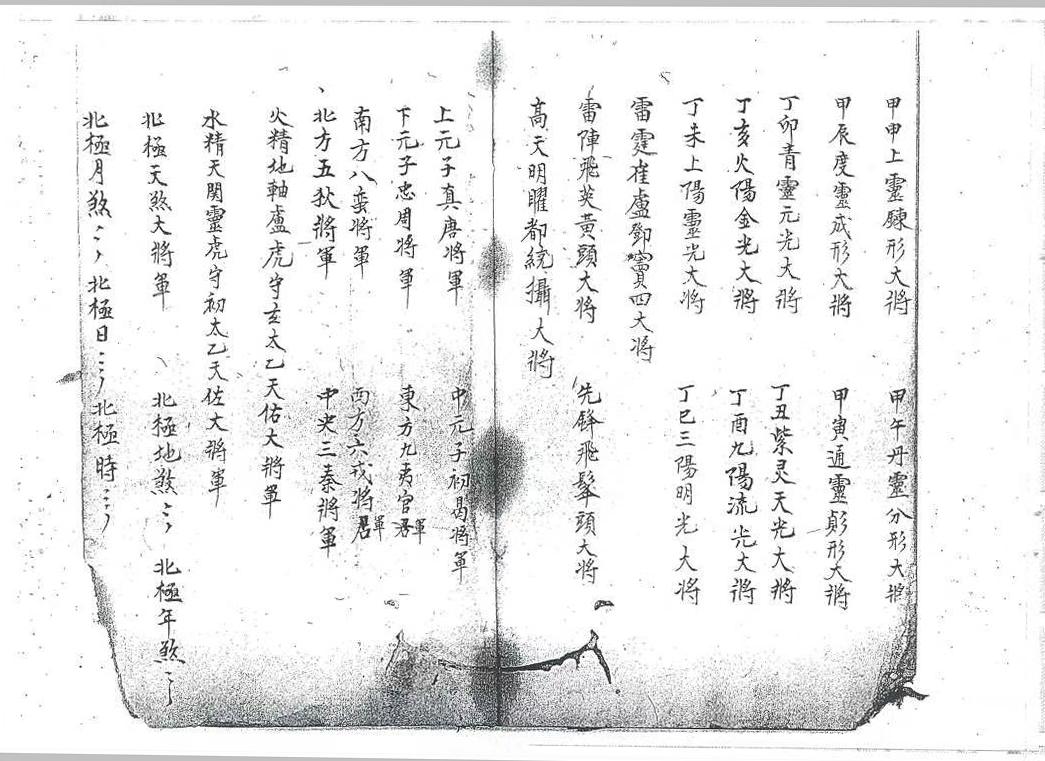 甲申上靈鍊形大將 甲午丹靈分形大將
甲辰度靈成形大將 甲寅通靈形大將
丁卯青靈元光大將 丁丑紫灵天光大將
丁亥火陽金光大將 丁酉九陽流光大將
丁未上陽靈光大将 丁巳三陽明光大将
雷霆崔盧鄧竇四大将
雷陣飛英黃頭大将 先鋒飛髦頭大将
高天明曜都統攝大将
上元子真唐將軍 中元子初葛將軍
下元子忠周將軍 東方九夷官君軍
南方八蛮將軍 西方六戎將君軍
北方五狄將軍 中央三秦將軍
火精地軸盧虎守玄太乙天佑大將軍
水精天関靈虎守初太乙天佐大將軍
北極天煞大將軍 北極地煞〻〻 北極年煞〻〻
北極月煞〻〻 北極日〻〻〻 北極時〻〻〻